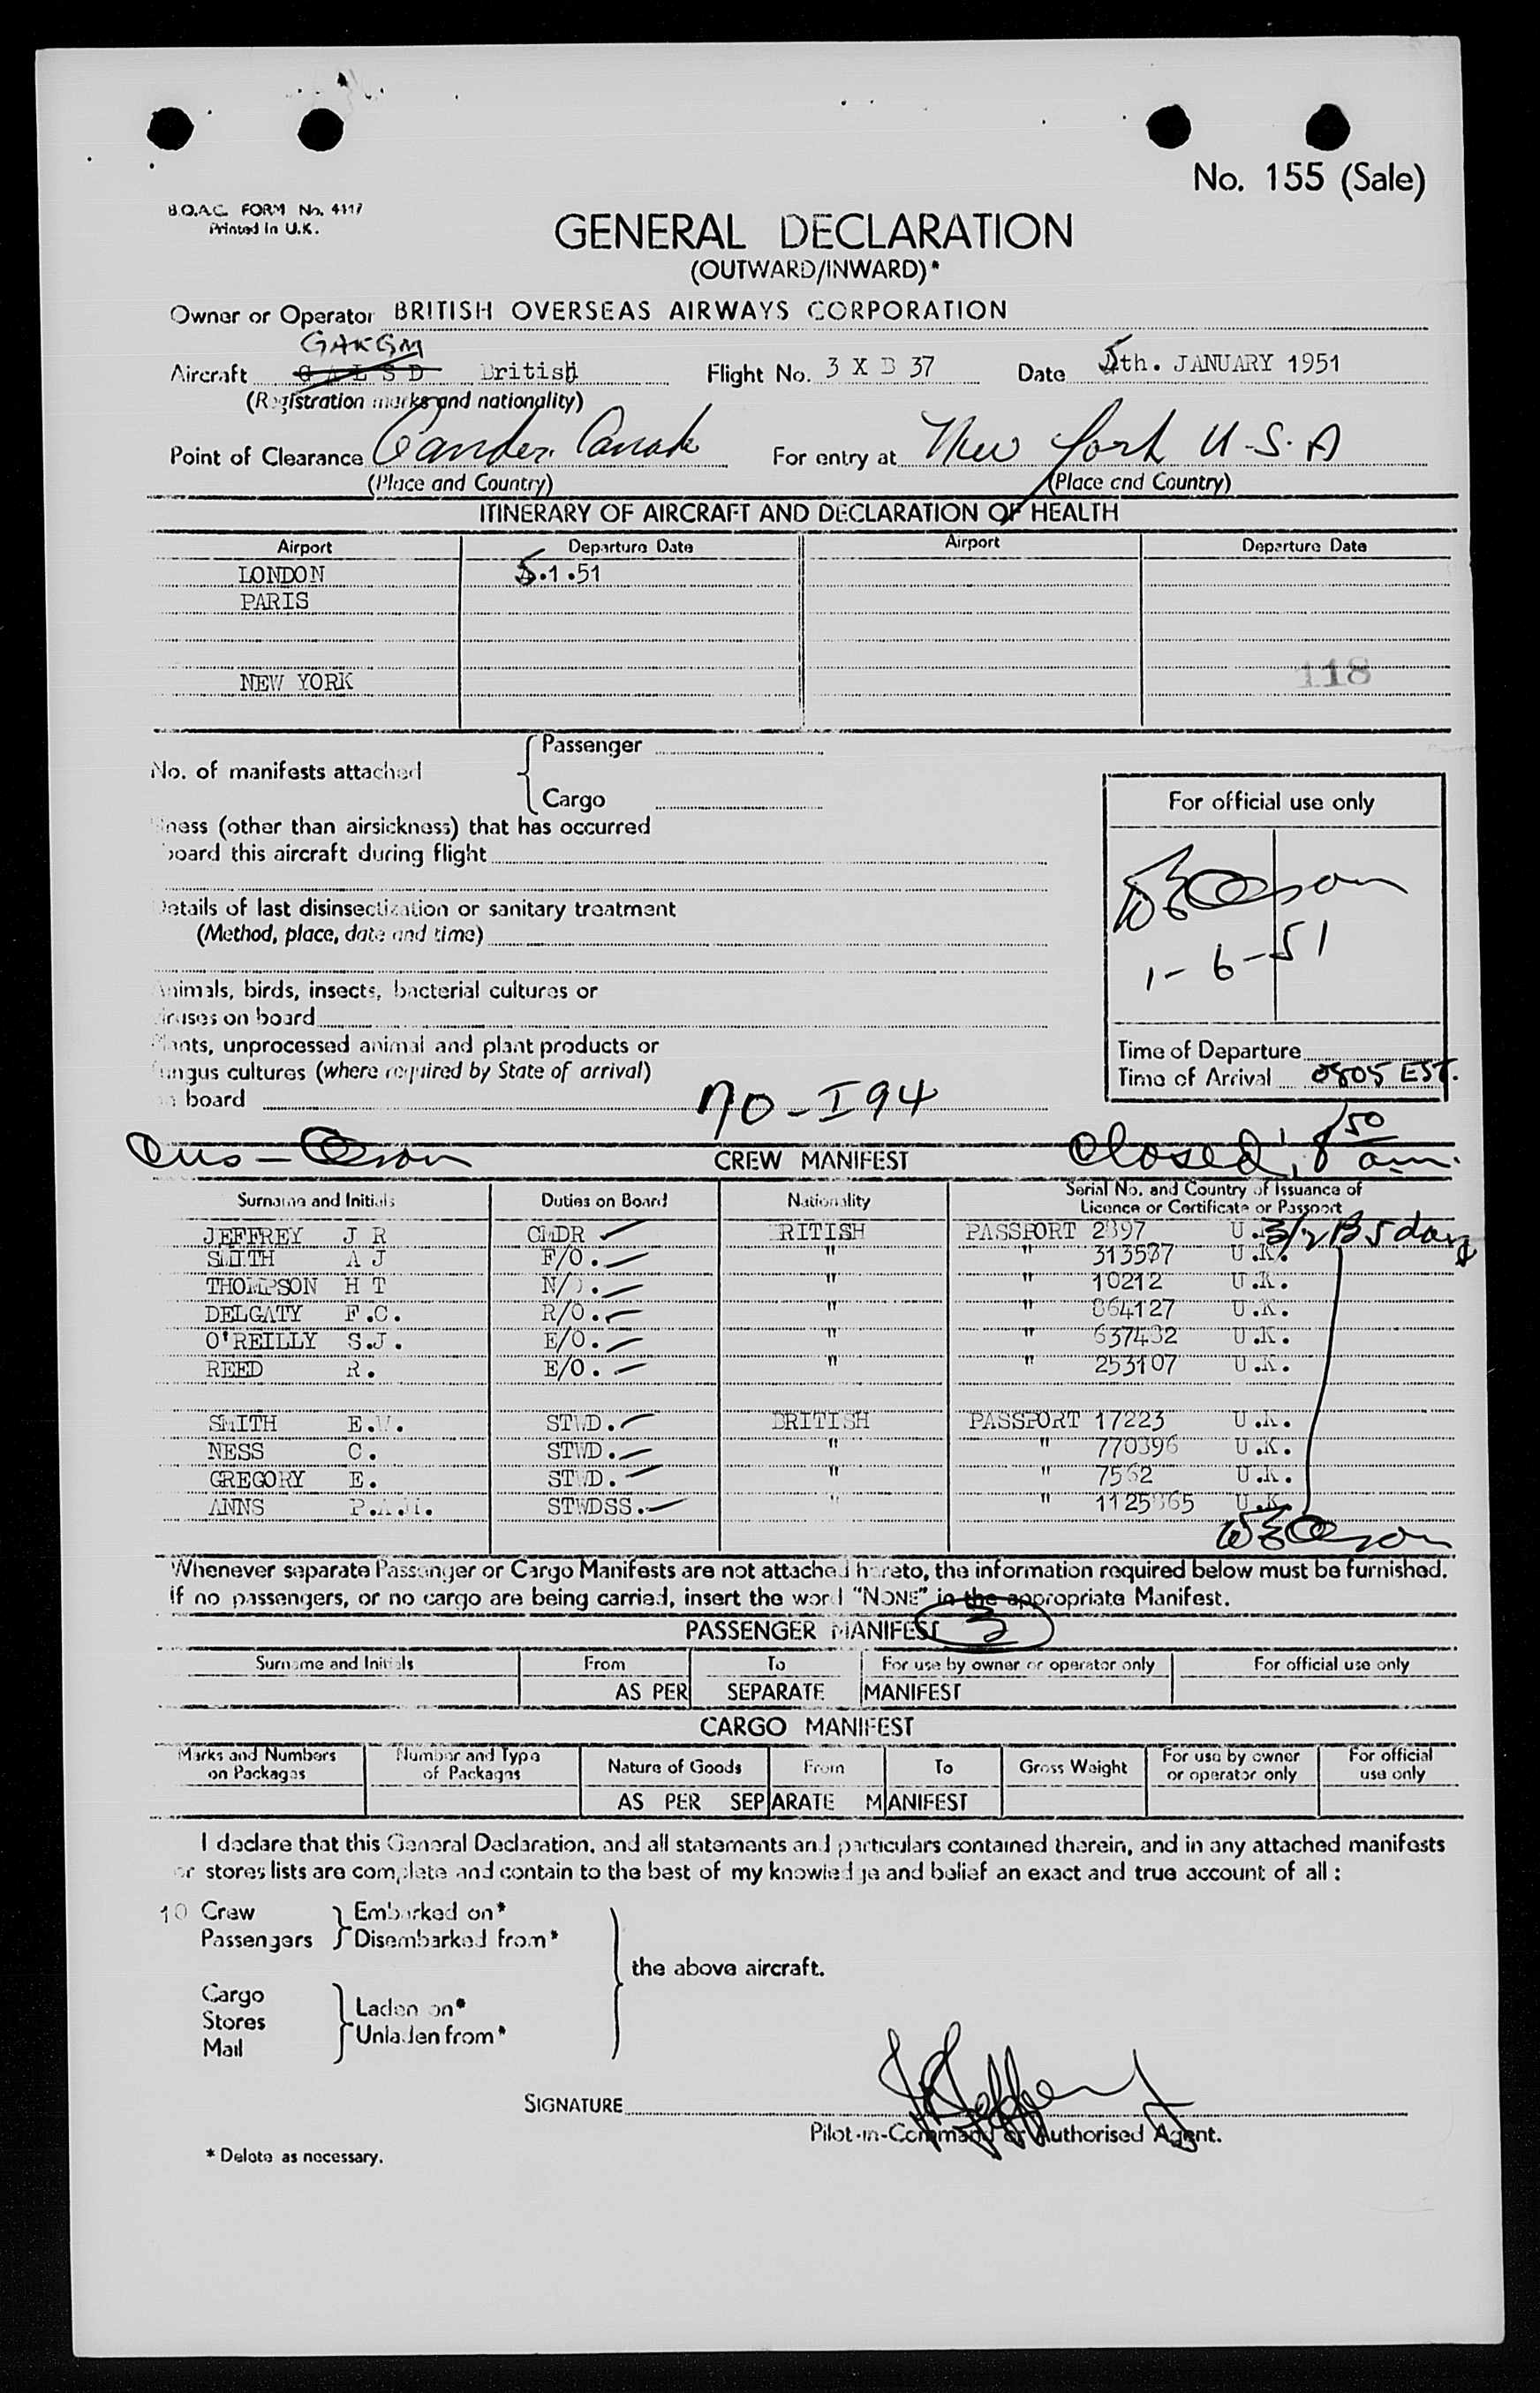 No. 155 (Sale)
B.O.A.C. FORM No. 4117
Printed in U.K.
GENERAL DECLARATION
(OUTWARD/INWARD)*
Owner or Operator BRITISH OVERSEAS AIRWAYS CORPORATION
GAKGM
Aircraft G A L S D British Flight No. 3 X B 37 Date 5th. JANUARY 1951
(Registration marks and nationality)
Point of Clearance Gander Canada For entry at New York U.S.A
(Place and Country) (Place and Country)
ITINERARY OF AIRCRAFT AND DECLARATION OF HEALTH
Airport Departure Date Airport Departure Date
LONDON 5.1.51
PARIS
NEW YORK 118
No. of manifests attached
Passenger
Cargo
For official use only
iness (other than airsickness) that has occurred
board this aircraft during flight
Details of last disinsectization or sanitary treatment
(Method, place, date and time)
1-6-51
Animals, birds, insects, bacterial cultures or
viruses on board
Plants, unprocessed animal and plant products or
fungus cultures (where required by State of arrival)
board
Time of Departure
Time of Arrival 0805 EST.
no-I94
Closed, 8 50 am.
CREW MANIFEST
Surname and Initials Duties on Board Nationality Serial No. and Country of Issuance of
Licence or Certificate or Passport
JEFFREY J R CMDR RITISH PASSPORT 2397 U.
SMITH A J F/O. " " 313577 U.K.
THOMPSON H T N/O. " " 10212 U.K.
DELGATY F.C. R/O. " " 864127 U.K.
O'REILLY S.J. E/O. " " 637432 U.K.
REED R. E/O. " " 253107 U.K.
SMITH E.W. STWD. BRITISH PASSPORT 17223 U.K.
NESS C. STWD. " " 770396 U.K.
GREGORY E. STWD. " " 7562 U.K.
ANNS P.A.M. STWDSS. " " 1125365 U.K.
Whenever separate Passenger or Cargo Manifests are not attached hereto, the information required below must be furnished.
If no passengers, or no cargo are being carried, insert the word "NONE" in the appropriate Manifest.
PASSENGER MANIFEST 3
Surname and Initials From To For use by owner or operator only For official use only
AS PER SEPARATE MANIFEST
CARGO MANIFEST
Marks and Numbers on Packages Number and Type of Packages Nature of Goods From To Gross Weight For use by owner or operator only For official use only
AS PER SEPARATE MANIFEST
I declare that this General Declaration, and all statements and particulars contained therein, and in any attached manifests
or stores lists are complete and contain to the best of my knowledge and belief an exact and true account of all :
10 Crew Embarked on*
Passengers Disembarked from*
the above aircraft.
Cargo
Stores
Mail
Laden on*
Unladen from*
SIGNATURE J R Jeffrey
Pilot-in-Command or Authorised Agent.
* Delete as necessary.